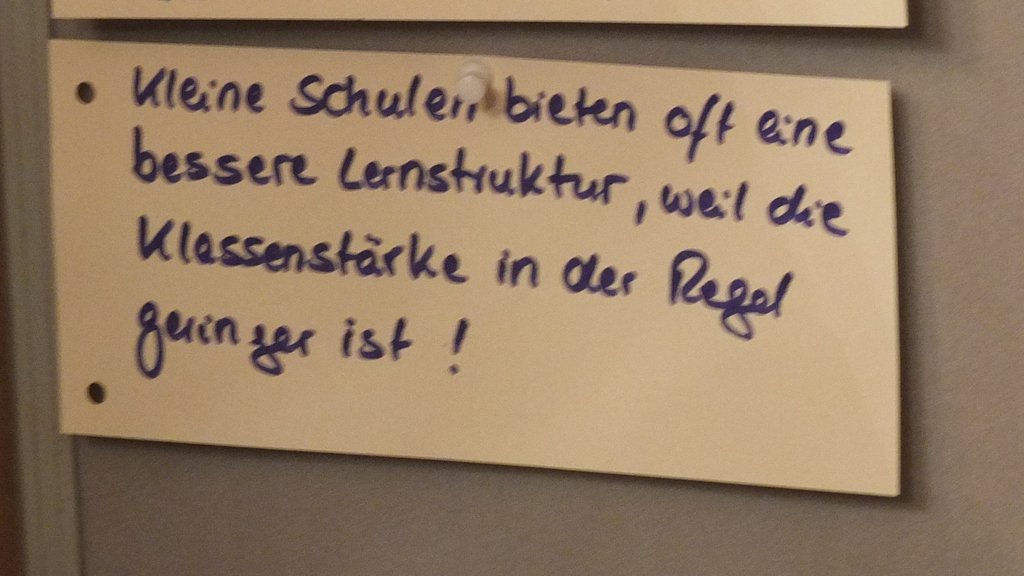 Kleine Schulen bieten oft eine
bessere Lernstruktur, weil die
Klassenstärke in der Regel
geringer ist !